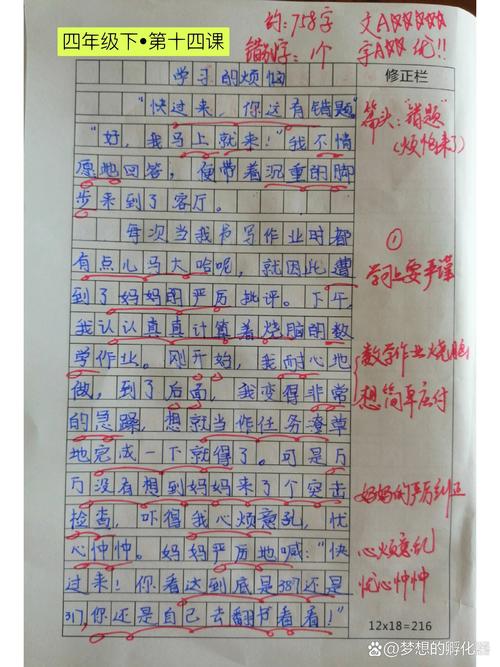 四年级下•第十四课
约:758字
错别字:1个
文A双双双双
字A双 优!!
修正栏
学习的烦恼
“快过来,你这有错题。”
“好,我马上就来!”我不情
愿地回答,便带着沉重的脚
步来到了客厅。
每次当我书写作业时都
有点儿马大哈呢,就因此遭
到了妈妈的严厉批评。下午,
我认认真真计算着烧脑的数
学作业。刚开始,我耐心地
做,到了后面,我变得非常
的急躁,想就当作任务潦草
地完成一下就得了。可是万
万没有想到妈妈来了个突击
检查,吓得我心烦意乱,忧
心忡忡。妈妈严厉地喊:“快
过来!你看这到底是387还是
317,你还是自己去翻书看看!”
篇头:“错题”
(烦恼来了)
①
学习上要严谨
数学作业烧脑
想简单应付
妈妈的严厉纠正
心烦意乱
忧心忡忡
12x18=216
@梦想的孵化器